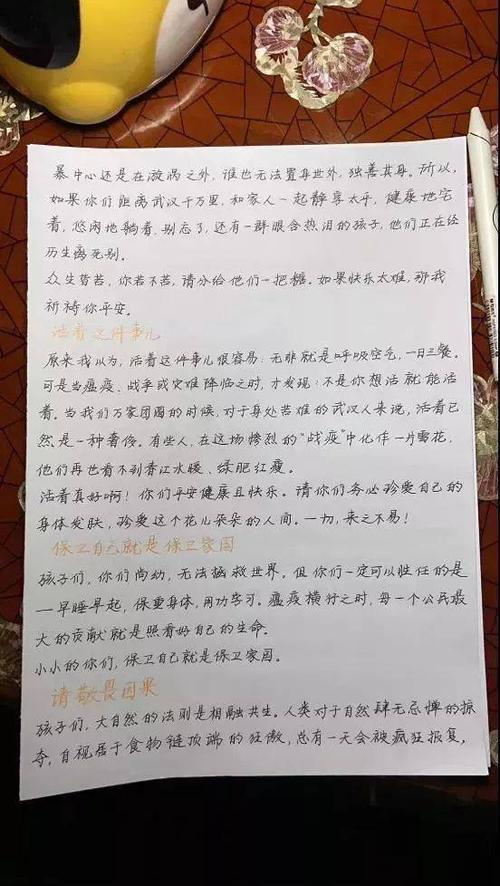 暴中心还是在漩涡之外，谁也无法置身世外，独善其身。所以，
如果你们距离武汉千万里，和家人一起静享太平，健康地宅
着，悠闲地躺着，别忘了，还有一群眼含热泪的孩子，他们正在经
历生离死别。
众生皆苦，你若不苦，请分给他们一把糖。如果快乐太难，那我
祈祷你平安。
活着这件事儿
原来我以为，活着这件事儿很容易：无非就是呼吸空气，一日三餐。
可是当瘟疫、战争或灾难降临之时，才发现：不是你想活就能活
着。当我们万家团圆的时候，对于身处苦难的武汉人来说，活着已
然是一种奢侈。有些人，在这场惨烈的“战疫”中化作一片雪花，
他们再也看不到春江水暖，绿肥红瘦。
活着真好啊！你们平安健康且快乐。请你们务必珍爱自己的
身体发肤，珍爱这个花儿朵朵的人间。一切，来之不易！
保卫自己就是保卫家园
孩子们，你们尚幼，无法拯救世界。但你们一定可以胜任的是
——早睡早起，保重身体，用功学习。瘟疫横行之时，每一个公民最
大的贡献就是照看好自己的生命。
小小的你们，保卫自己就是保卫家园。
请敬畏因果
孩子们，大自然的法则是相融共生。人类对于自然肆无忌惮的掠
夺，自视居于食物链顶端的狂傲，总有一天会被疯狂报复，